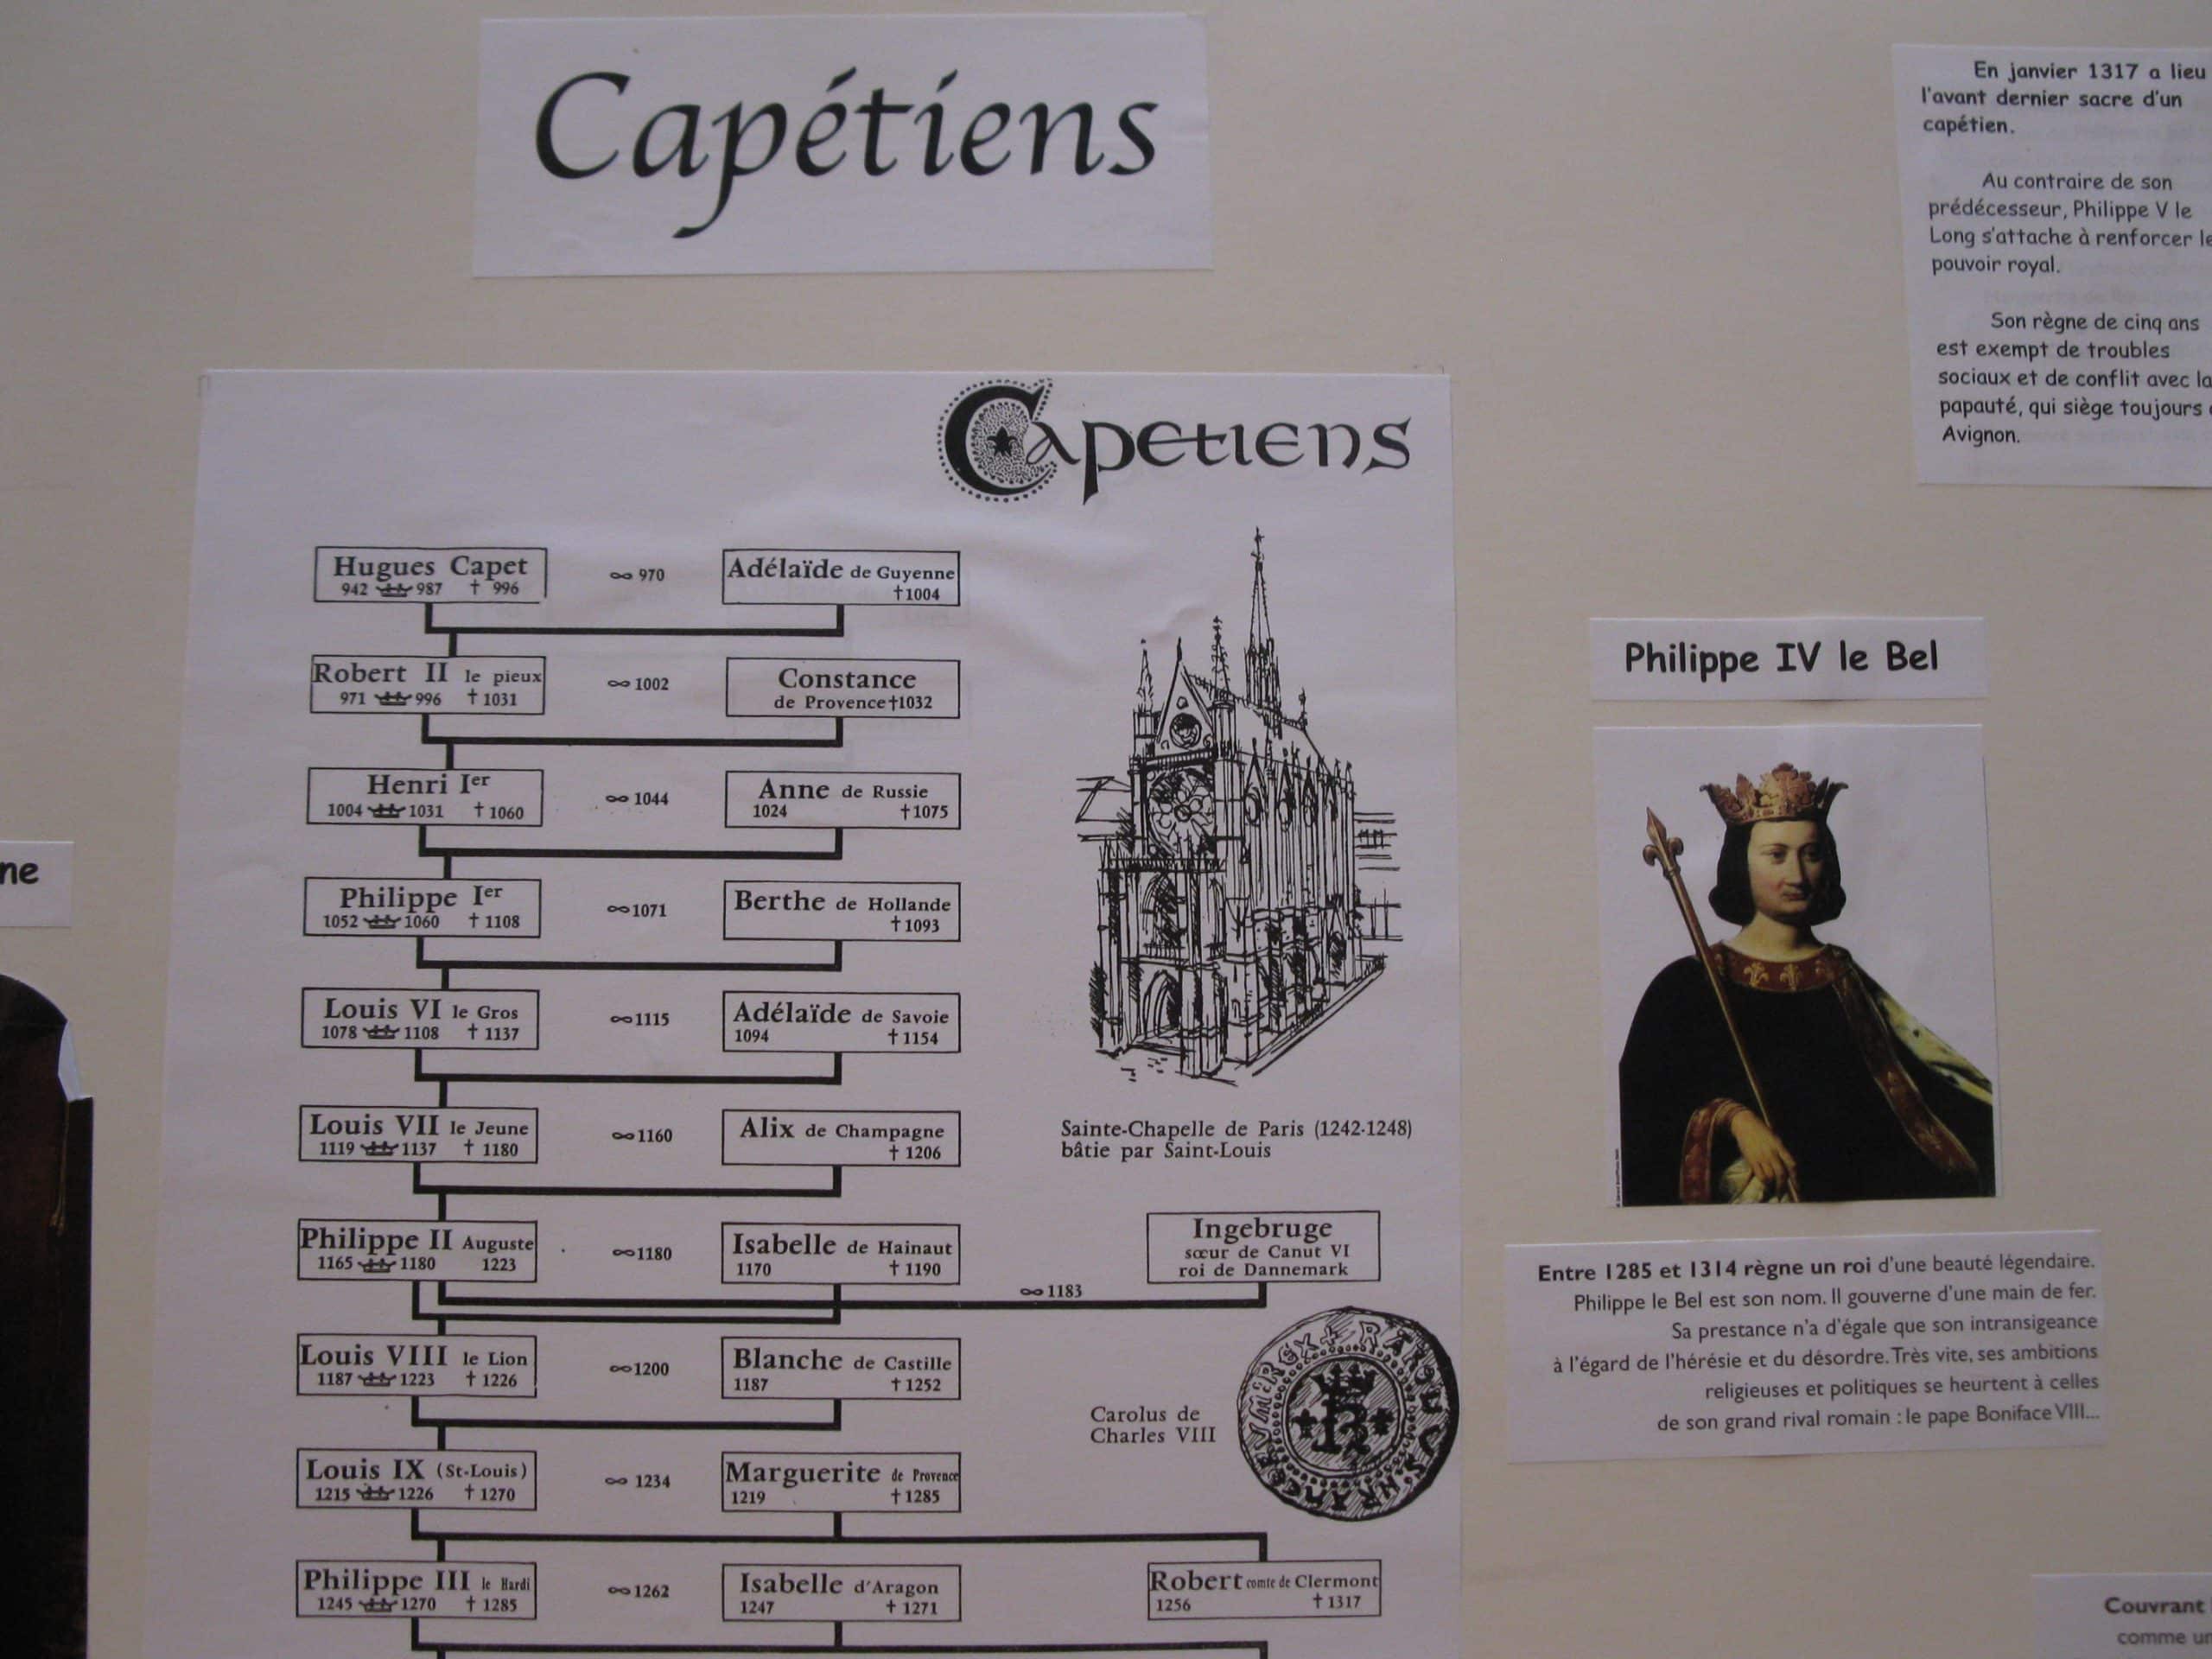 Capétiens
En janvier 1317 a lieu
l'avant dernier sacre d'un
capétien.
Au contraire de son
prédécesseur, Philippe V le
Long s'attache à renforcer le
pouvoir royal.
Son règne de cinq ans
est exempt de troubles
sociaux et de conflit avec la
papauté, qui siège toujours
Avignon.
Capetiens
Hugues Capet
942 987 † 996
∞ 970
Adélaïde de Guyenne
†1004
Robert II le pieux
971 996 † 1031
∞ 1002
Constance
de Provence †1032
Henri Ier
1004 1031 † 1060
∞ 1044
Anne de Russie
1024 †1075
Philippe Ier
1052 1060 † 1108
∞1071
Berthe de Hollande
†1093
Louis VI le Gros
1078 1108 † 1137
∞1115
Adélaïde de Savoie
1094 † 1154
Louis VII le Jeune
1119 1137 † 1180
∞1160
Alix de Champagne
† 1206
Sainte-Chapelle de Paris (1242-1248)
bâtie par Saint-Louis
Philippe II Auguste
1165 1180 1223
∞1180
Isabelle de Hainaut
1170 † 1190
∞ 1183
Ingebruge
sœur de Canut VI
roi de Dannemark
Louis VIII le Lion
1187 1223 † 1226
∞1200
Blanche de Castille
1187 † 1252
Carolus de
Charles VIII
Louis IX (St-Louis)
1215 1226 † 1270
∞ 1234
Marguerite de Provence
1219 † 1285
Philippe III le Hardi
1245 1270 † 1285
∞1262
Isabelle d'Aragon
1247 † 1271
Robert comte de Clermont
1256 † 1317
ne
Philippe IV le Bel
Entre 1285 et 1314 règne un roi d'une beauté légendaire.
Philippe le Bel est son nom. Il gouverne d'une main de fer.
Sa prestance n'a d'égale que son intransigeance
à l'égard de l'hérésie et du désordre. Très vite, ses ambitions
religieuses et politiques se heurtent à celles
de son grand rival romain : le pape Boniface VIII...
Couvrant
comme un